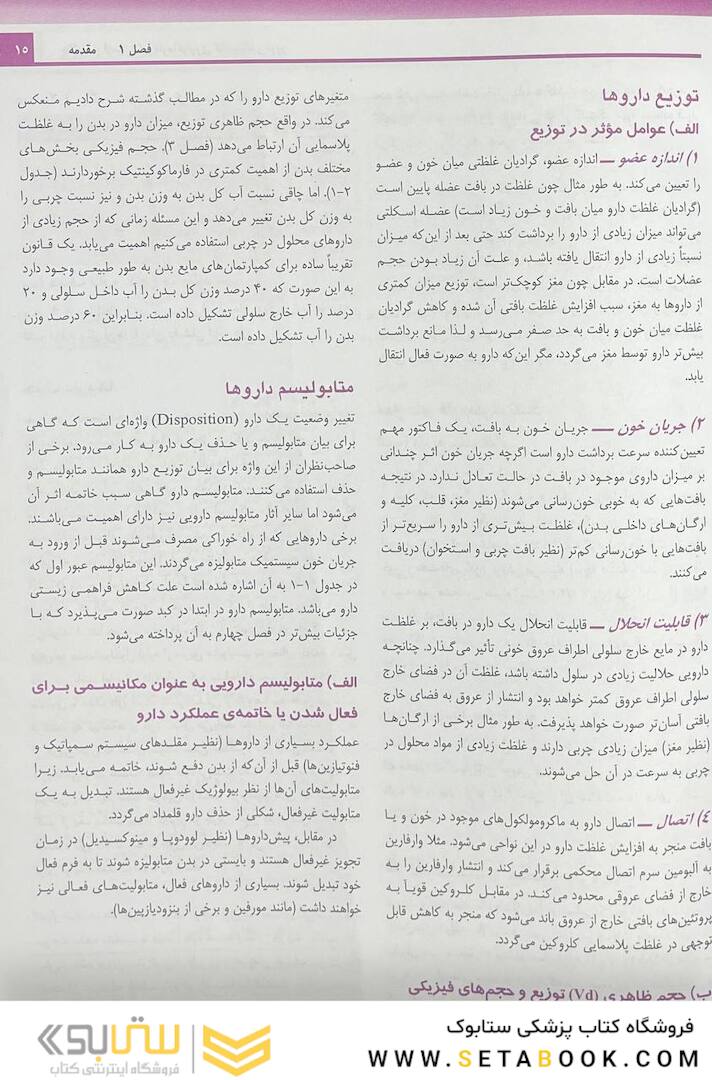 فصل ۱ مقدمه ۱۵
توزیع داروها
الف) عوامل مؤثر در توزیع
۱) اندازه عضو ــ اندازه عضو، گرادیان غلظتی میان خون و عضو
را تعیین می‌کند. به طور مثال چون غلظت در بافت عضله پایین است
(گرادیان غلظت دارو میان بافت و خون زیاد است) عضله اسکلتی
می‌تواند میزان زیادی از دارو را برداشت کند حتی بعد از این‌که میزان
نسبتاً زیادی از دارو انتقال یافته باشد، و علت آن زیاد بودن حجم
عضلات است. در مقابل چون مغز کوچک‌تر است، توزیع میزان کمتری
از داروها به مغز، سبب افزایش غلظت بافتی آن شده و کاهش گرادیان
غلظت میان خون و بافت به حد صفر می‌رسد و لذا مانع برداشت
بیش‌تر دارو توسط مغز می‌گردد، مگر این‌که دارو به صورت فعال انتقال
یابد.
۲) جریان خون ــ جریان خون به بافت، یک فاکتور مهم
تعیین‌کننده سرعت برداشت دارو است اگرچه جریان خون اثر چندانی
بر میزان داروی موجود در بافت در حالت تعادل ندارد. در نتیجه
بافت‌هایی که به خوبی خون‌رسانی می‌شوند (نظیر مغز، قلب، کلیه و
ارگان‌های داخلی بدن)، غلظت بیش‌تری از دارو را سریع‌تر از
بافت‌هایی با خون‌رسانی کم‌تر (نظیر بافت چربی و استخوان) دریافت
می‌کنند.
۳) قابلیت انحلال ــ قابلیت انحلال یک دارو در بافت، بر غلظت
دارو در مایع خارج سلولی اطراف عروق خونی تأثیر می‌گذارد. چنانچه
دارویی حلالیت زیادی در سلول داشته باشد، غلظت آن در فضای خارج
سلولی اطراف عروق کمتر خواهد بود و انتشار از عروق به فضای خارج
بافتی آسان‌تر صورت خواهد پذیرفت. به طور مثال برخی از ارگان‌ها
(نظیر مغز) میزان زیادی چربی دارند و غلظت زیادی از مواد محلول در
چربی به سرعت در آن حل می‌شوند.
۴) اتصال ــ اتصال دارو به ماکرومولکول‌های موجود در خون و یا
بافت منجر به افزایش غلظت دارو در این نواحی می‌شود. مثلا وارفارین
به آلبومین سرم اتصال محکمی برقرار می‌کند و انتشار وارفارین را به
خارج از فضای عروقی محدود می‌کند. در مقابل کلروکین قویاً به
پروتئین‌های بافتی خارج از عروق باند می‌شود که منجر به کاهش قابل
توجهی در غلظت پلاسمایی کلروکین می‌گردد.
ب) حجم ظاهری (Vd) توزیع و حجم‌های فیزیکی
متغیرهای توزیع دارو را که در مطالب گذشته شرح دادیم منعکس
می‌کند. در واقع حجم ظاهری توزیع، میزان دارو در بدن را به غلظت
پلاسمایی آن ارتباط می‌دهد (فصل ۳). حجم فیزیکی بخش‌های
مختلف بدن از اهمیت کمتری در فارماکوکینتیک برخوردارند (جدول
۲-۱). اما چاقی نسبت آب کل بدن به وزن بدن و نیز نسبت چربی را
به وزن کل بدن تغییر می‌دهد و این مسئله زمانی که از حجم زیادی از
داروهای محلول در چربی استفاده می‌کنیم اهمیت می‌یابد. یک قانون
تقریباً ساده برای کمپارتمان‌های مایع بدن به طور طبیعی وجود دارد
به این صورت که ۴۰ درصد وزن کل بدن را آب داخل سلولی و ۲۰
درصد را آب خارج سلولی تشکیل داده است. بنابراین ۶۰ درصد وزن
بدن را آب تشکیل داده است.
متابولیسم داروها
تغییر وضعیت یک دارو (Disposition) واژه‌ای است که گاهی
برای بیان متابولیسم و یا حذف یک دارو به کار می‌رود. برخی از
صاحب‌نظران از این واژه برای بیان توزیع دارو همانند متابولیسم و
حذف استفاده می‌کنند. متابولیسم دارو گاهی سبب خاتمه اثر آن
می‌شود اما سایر آثار متابولیسم دارویی نیز دارای اهمیت می‌باشند.
برخی داروهایی که از راه خوراکی مصرف می‌شوند قبل از ورود به
جریان خون سیستمیک متابولیزه می‌گردند. این متابولیسم عبور اول که
در جدول ۱-۱ به آن اشاره شده است علت کاهش فراهمی زیستی
دارو می‌باشد. متابولیسم دارو در ابتدا در کبد صورت می‌پذیرد که با
جزئیات بیش‌تر در فصل چهارم به آن پرداخته می‌شود.
الف) متابولیسم دارویی به عنوان مکانیسمی برای
فعال شدن یا خاتمه‌ی عملکرد دارو
عملکرد بسیاری از داروها (نظیر مقلدهای سیستم سمپاتیک و
فنوتیازین‌ها) قبل از آن‌که از بدن دفع شوند، خاتمه می‌یابد. زیرا
متابولیت‌های آن‌ها از نظر بیولوژیک غیرفعال هستند. تبدیل به یک
متابولیت غیرفعال، شکلی از حذف دارو قلمداد می‌گردد.
در مقابل، پیش‌داروها (نظیر لوودوپا و مینوکسیدیل) در زمان
تجویز غیرفعال هستند و بایستی در بدن متابولیزه شوند تا به فرم فعال
خود تبدیل شوند. بسیاری از داروهای فعال، متابولیت‌های فعالی نیز
خواهند داشت (مانند مورفین و برخی از بنزودیازپین‌ها).
فروشگاه کتاب پزشکی ستابوک
WWW.SETABOOK.COM
ستابوک
فروشگاه اینترنتی کتاب